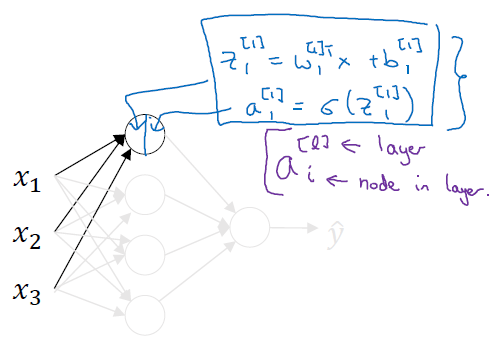 z₁^[1] = w₁^[1]T x + b₁^[1]
a₁^[1] = σ(z₁^[1])
a_i^[l] ← layer
← node in layer.
x₁
x₂
x₃
ŷ